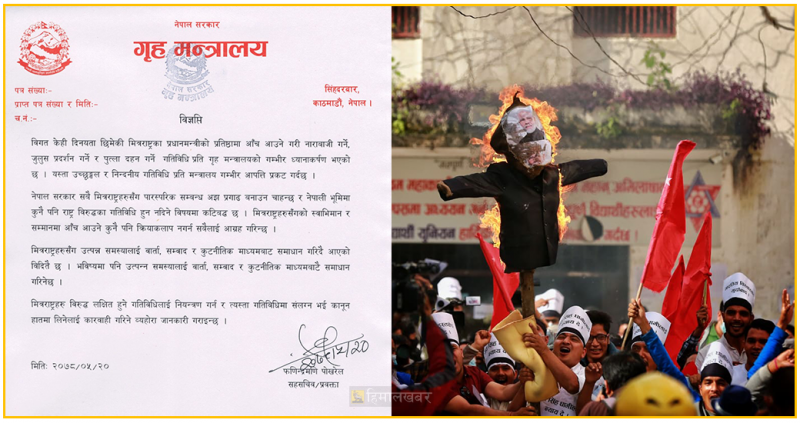 नेपाल सरकार
गृह मन्त्रालय
पत्र संख्या:-
प्राप्त पत्र संख्या र मिति:-
च.नं.:-
सिंहदरबार,
काठमाडौं, नेपाल ।
विज्ञप्ति
विगत केही दिनयता छिमेकी मित्रराष्ट्रका प्रधानमन्त्रीको प्रतिष्ठामा आँच आउने गरी नाराबाजी गर्ने,
जुलुस प्रदर्शन गर्ने र पुत्ला दहन गर्ने गतिविधि प्रति गृह मन्त्रालयको गम्भीर ध्यानाकर्षण भएको
छ । यस्ता उच्छृङ्खल र निन्दनीय गतिविधि प्रति मन्त्रालय गम्भीर आपत्ति प्रकट गर्दछ ।
नेपाल सरकार सबै मित्रराष्ट्रहरुसँग पारस्परिक सम्बन्ध अझ प्रगाढ बनाउन चाहन्छ र नेपाली भूमिमा
कुनै पनि राष्ट्र विरुद्धका गतिविधि हुन नदिने विषयमा कटिबद्ध छ । मित्रराष्ट्रहरुसँगको स्वाभिमान र
सम्मानमा आँच आउने कुनै पनि क्रियाकलाप नगर्न सबैलाई आग्रह गरिन्छ ।
मित्रराष्ट्रहरुसँग उत्पन्न समस्यालाई वार्ता, सम्वाद र कुटनीतिक माध्यमबाट समाधान गरिँदै आएको
विदितै छ । भविष्यमा पनि उत्पन्न समस्यालाई वार्ता, सम्वाद र कुटनीतिक माध्यमबाटै समाधान
गरिनेछ ।
मित्रराष्ट्रहरु विरुद्ध लक्षित हुने गतिविधिलाई नियन्त्रण गर्न र त्यस्ता गतिविधिमा संलग्न भई कानून
हातमा लिनेलाई कारवाही गरिने व्यहोरा जानकारी गराइन्छ ।
मिति: २०७८/०५/२०
फणिन्द्रमणि पोखरेल
सहसचिव/प्रवक्ता
हिमालखबर